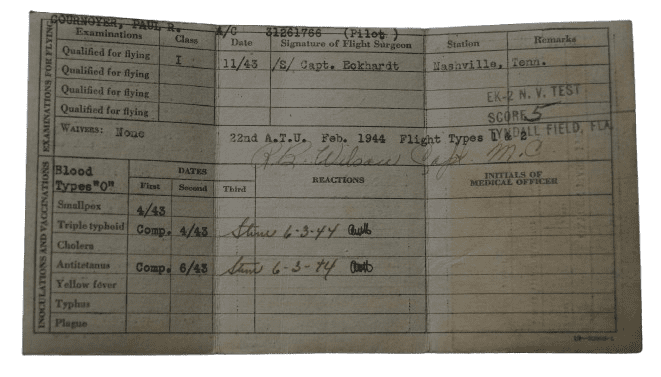 COURNOYER, PAUL R. A/C 31261766 (Pilot)
Examinations Class Date Signature of Flight Surgeon Station Remarks
EXAMINATIONS FOR FLYING
Qualified for flying I 11/43 /S/ Capt. Eckhardt Nashville, Tenn.
Qualified for flying
Qualified for flying
Qualified for flying
EK-2 N. V. TEST
SCORE 5
TYNDALL FIELD, FLA.
WAIVERS: None
22nd A.T.U. Feb. 1944 Flight Types 1 & 2
Wilson Capt. M.C.
INOCULATIONS AND VACCINATIONS
Blood Types "O"
DATES
First Second Third
REACTIONS
INITIALS OF MEDICAL OFFICER
Smallpox 4/43
Triple typhoid Comp. 4/43 Stim 6-3-44
Cholera
Antitetanus Comp. 6/43 Stim 6-3-44
Yellow fever
Typhus
Plague